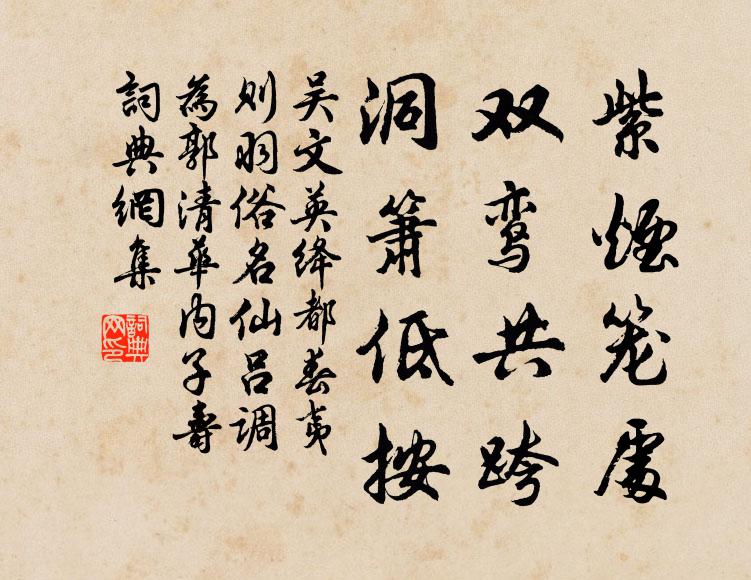 紫煙笼處
双鸾共跨
洞箫低按
吴文英绛都春夷
则羽俗名仙吕调
為郭清華内子壽
詞典網集
詞典網印